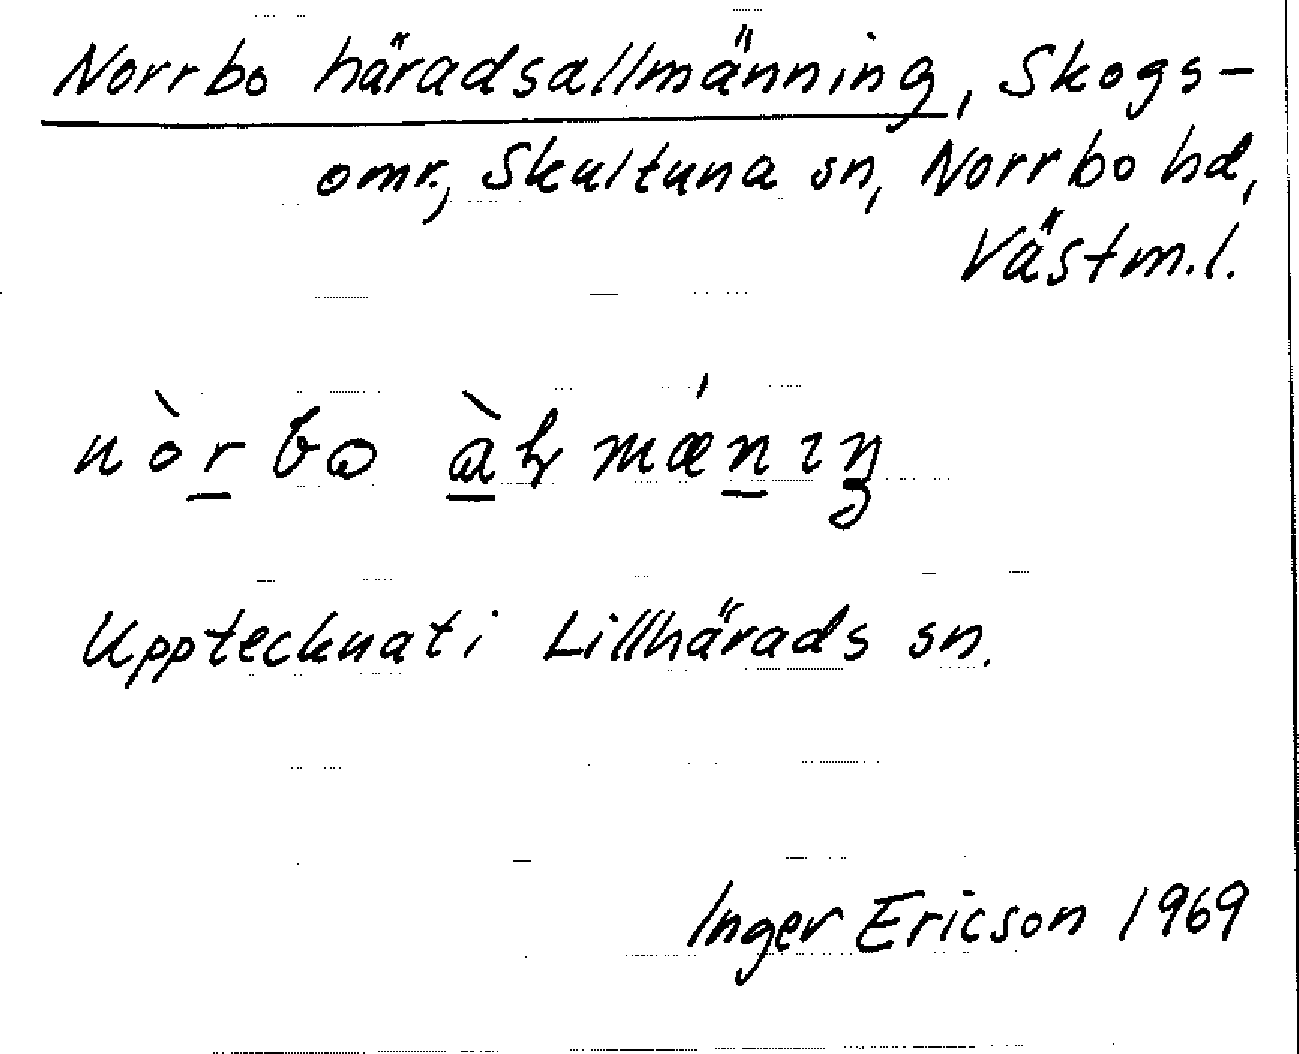 Norrbo häradsallmänning, Skogs-
omr., Skultuna sn, Norrbo hd,
Västm.l.
nòrbo àlmǽnıŋ
Upptecknat i Lillhärads sn.
Inger Ericson 1969